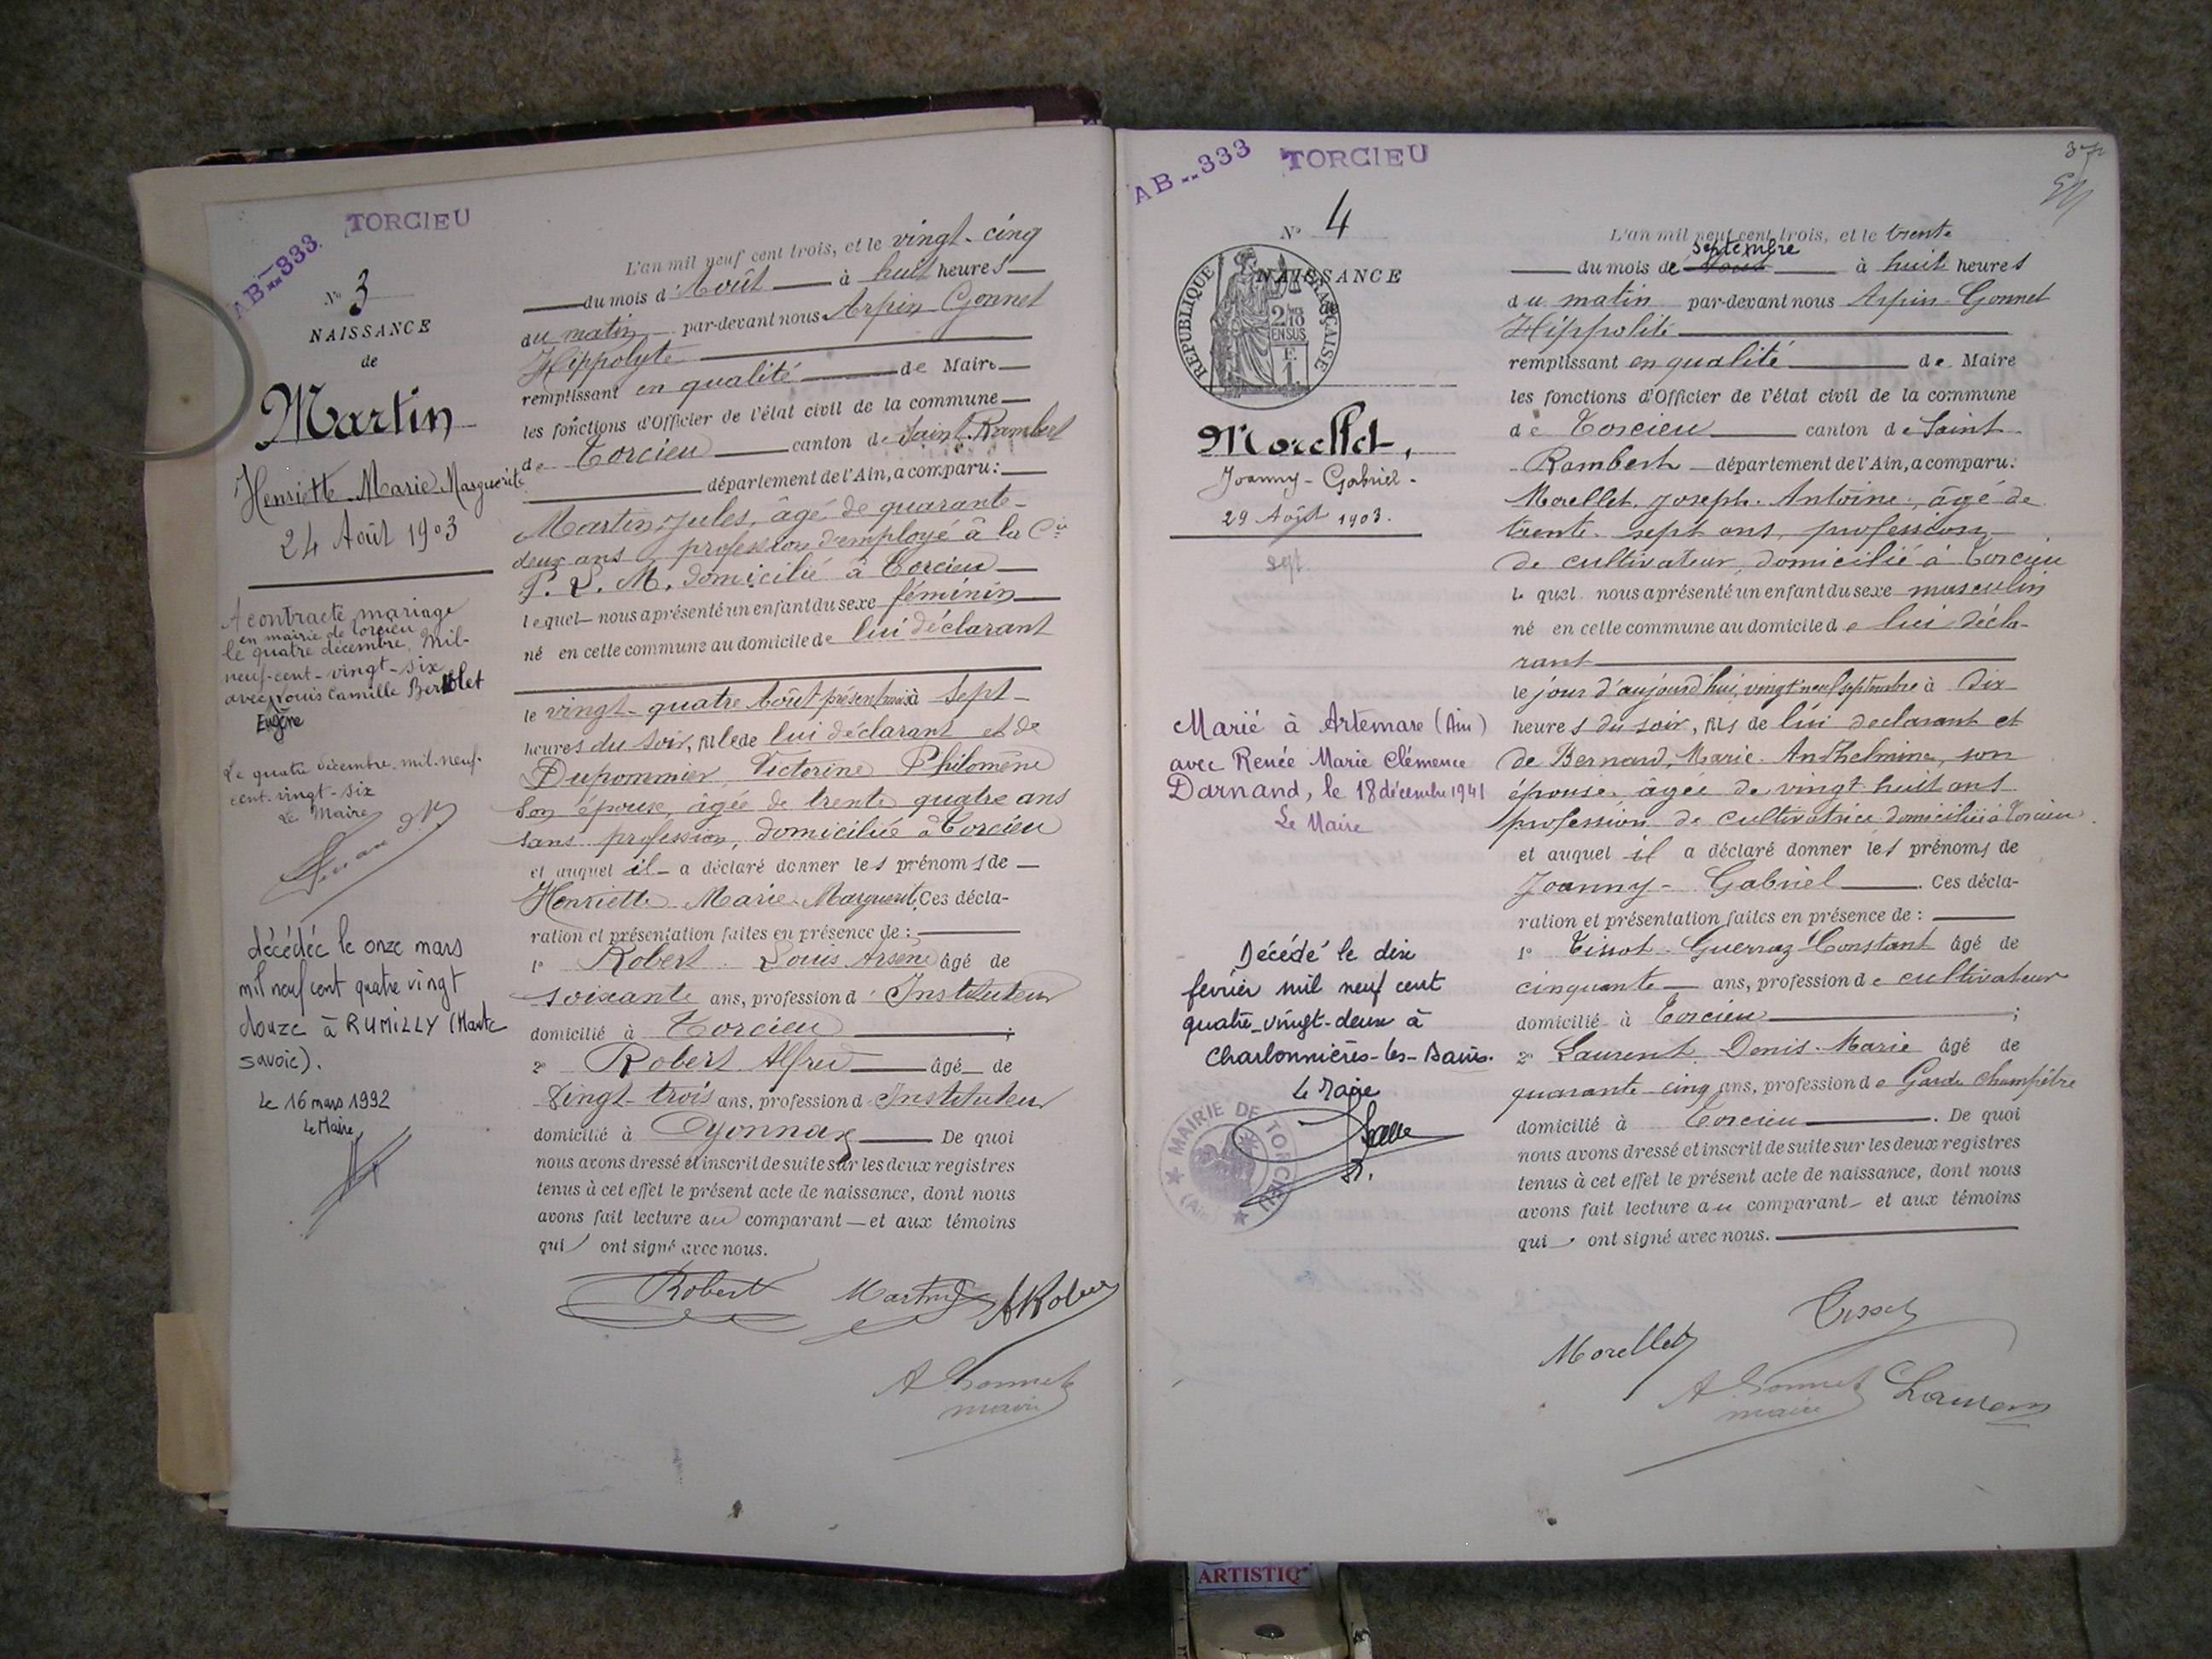 AB--333 TORCIEU
N° 3
NAISSANCE
de
Martin
Henriette Marie Marguerite
24 Août 1903
A contracté mariage
en mairie de Torcieu
le quatre décembre mil-
neuf-cent-vingt-six
avec Louis Camille Berthet
Eugène
Le quatre décembre mil-neuf-
cent-vingt-six
Le Maire
décédée le onze mars
mil neuf cent quatre vingt
douze à RUMILLY (Haute
savoie).
Le 16 mars 1992
Le Maire
L'an mil neuf cent trois, et le vingt-cinq
du mois d'Août à huit heures
du matin par-devant nous Arpin-Gonnet
Hippolyte
remplissant en qualité de Maire
les fonctions d'Officier de l'état civil de la commune
de Torcieu canton de Saint-Rambert
département de l'Ain, a comparu:
Martin Jules, âgé de quarante-
deux ans, profession d'employé à la Cie
P. L. M. domicilié à Torcieu
lequel nous a présenté un enfant du sexe féminin
né en cette commune au domicile de lui déclarant
le vingt-quatre Août présent mois à sept
heures du soir, fille de lui déclarant et de
Dupommier Victorine Philomène
son épouse, âgée de trente quatre ans
sans profession, domiciliée à Torcieu
et auquel il a déclaré donner les prénoms de
Henriette Marie Marguerite. Ces décla-
ration et présentation faites en présence de :
1° Robert Louis Arsène âgé de
soixante ans, profession d'Instituteur
domicilié à Torcieu ;
2° Robert Alfred âgé de
vingt-trois ans, profession d'Instituteur
domicilié à Oyonnax De quoi
nous avons dressé et inscrit de suite sur les deux registres
tenus à cet effet le présent acte de naissance, dont nous
avons fait lecture au comparant et aux témoins
qui ont signé avec nous.
Robert Martin J A Robert
A Gonnet
maire
AB--333 TORCIEU
37
N° 4
NAISSANCE
RÉPUBLIQUE FRANÇAISE
2/10
EN SUS
F.
1
Morellet,
Joanny-Gabriel.
29 Août 1903.
sept
Marié à Artemare (Ain)
avec Renée Marie Clémence
Darnand, le 18 décembre 1941
Le Maire
Décédé le dix
février mil neuf cent
quatre-vingt-deux à
Charbonnières-les-Bains.
Le Maire
MAIRIE DE TORCIEU
(Ain)
L'an mil neuf cent trois, et le trente
septembre
du mois de Août à huit heures
du matin par-devant nous Arpin-Gonnet
Hippolite
remplissant en qualité de Maire
les fonctions d'Officier de l'état civil de la commune
de Torcieu canton de Saint-
Rambert département de l'Ain, a comparu:
Morellet, Joseph-Antoine, âgé de
trente-sept ans, profession
de cultivateur, domicilié à Torcieu
lequel nous a présenté un enfant du sexe masculin
né en cette commune au domicile de lui décla-
rant
le jour d'aujourd'hui, vingt-neuf septembre à dix
heures du soir, fils de lui déclarant et
de Bernard, Marie-Anthelmine, son
épouse âgée de vingt huit ans
profession de cultivatrice domiciliée à Torcieu.
et auquel il a déclaré donner les prénoms de
Joanny-Gabriel. Ces décla-
ration et présentation faites en présence de :
1° Tissot-Guerraz Constant âgé de
cinquante ans, profession de cultivateur
domicilié à Torcieu ;
2° Laurent Denis-Marie âgé de
quarante-cinq ans, profession de Garde Champêtre
domicilié à Torcieu. De quoi
nous avons dressé et inscrit de suite sur les deux registres
tenus à cet effet le présent acte de naissance, dont nous
avons fait lecture au comparant et aux témoins
qui ont signé avec nous.
Tissot
Morellet
A Gonnet Laurent
maire
ARTISTIQ